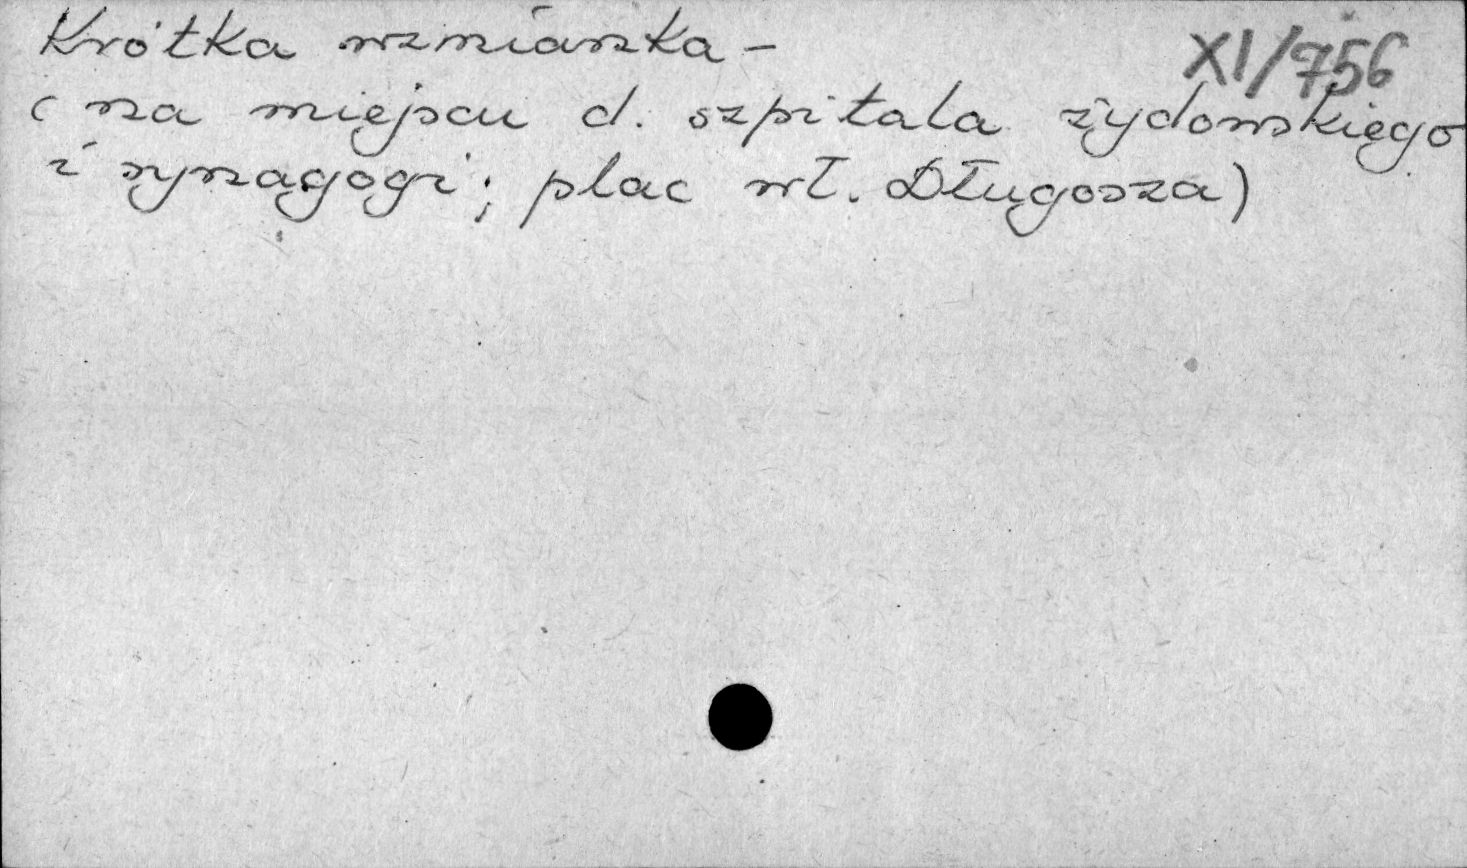 Krótka wzmianka –
XI/756
(na miejscu d. szpitala żydowskiego
i synagogi; plac wł. Długosza)